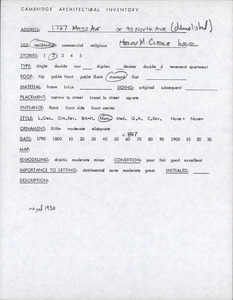 CAMBRIDGE ARCHITECTURAL INVENTORY
ADDRESS: 1727 Mass Ave or 90 North Ave (demolished)
USE: residential commercial religious
STORIES: 1 2 3 4 5
TYPE: single double row duplex decker double d tenement apartment
ROOF: hip gable front gable flank mansard flat
MATERIAL: frame brick SIDING: original subsequent
PLACEMENT: narrow to street broad to street square
ENTRANCE: flank front side front center
STYLE: Geo. Grk.Rev. Mans. Med. Q.A. C.Rev. None+ None-
ORNAMENT: little moderate elaborate
c. 1867
DATE: 1790 1800 10 20 30 40 50 60 70 80 90 1900 10 20 30 40 50 60
MAP:
REMODELING: drastic moderate minor CONDITION: poor fair good excellent
IMPORTANCE TO SETTING: detrimental none moderate great INITIALED:
DESCRIPTION:
razed 1930